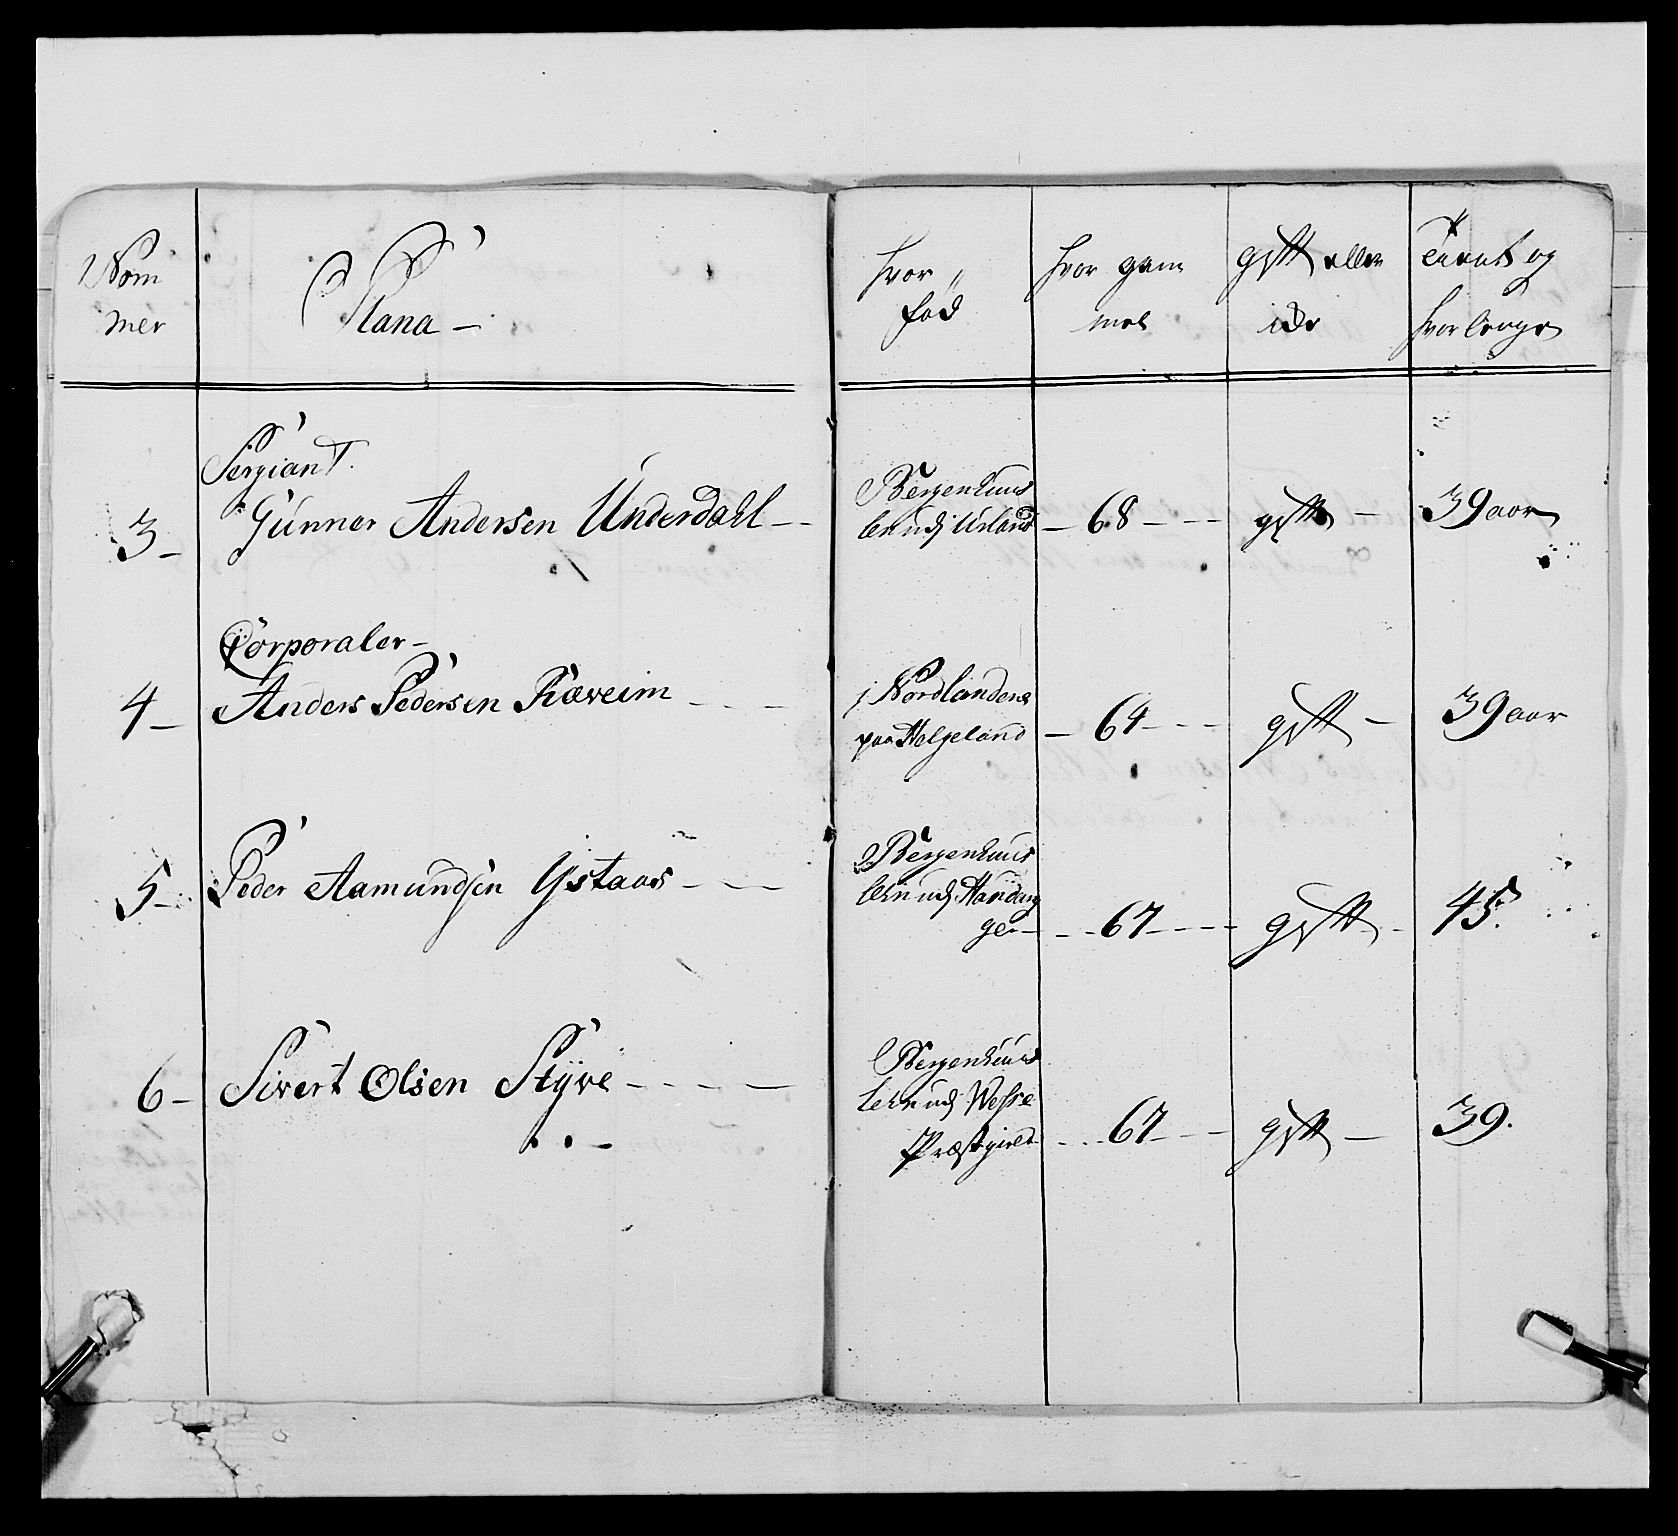 Nom
mer
Nana –
hvor
fød
hvor gam
mel
gift eller
icke
Tient og
hvor lenge
Sergiant.
3 – Gunner Andersen Underdahl – –
Bergenhuus
lehn udj Urland – 68 – – – gift – 39 aar
Corporaler –
4 – Anders Pedersen Ræveim – – –
j Nordlandene
paa Helgeland – 64 – – – gift – 39 aar
5 – Peder Aamundsen Ystaas – – –
Bergenhuus
lehn udj Hardan
ger – – – 67 – – – – gift – 45.
6 – Sivert Olsen Styve – – – – –
Bergenhuus
lehn udj Wosse
Præstgield – – – 67 – – – gift – 39.